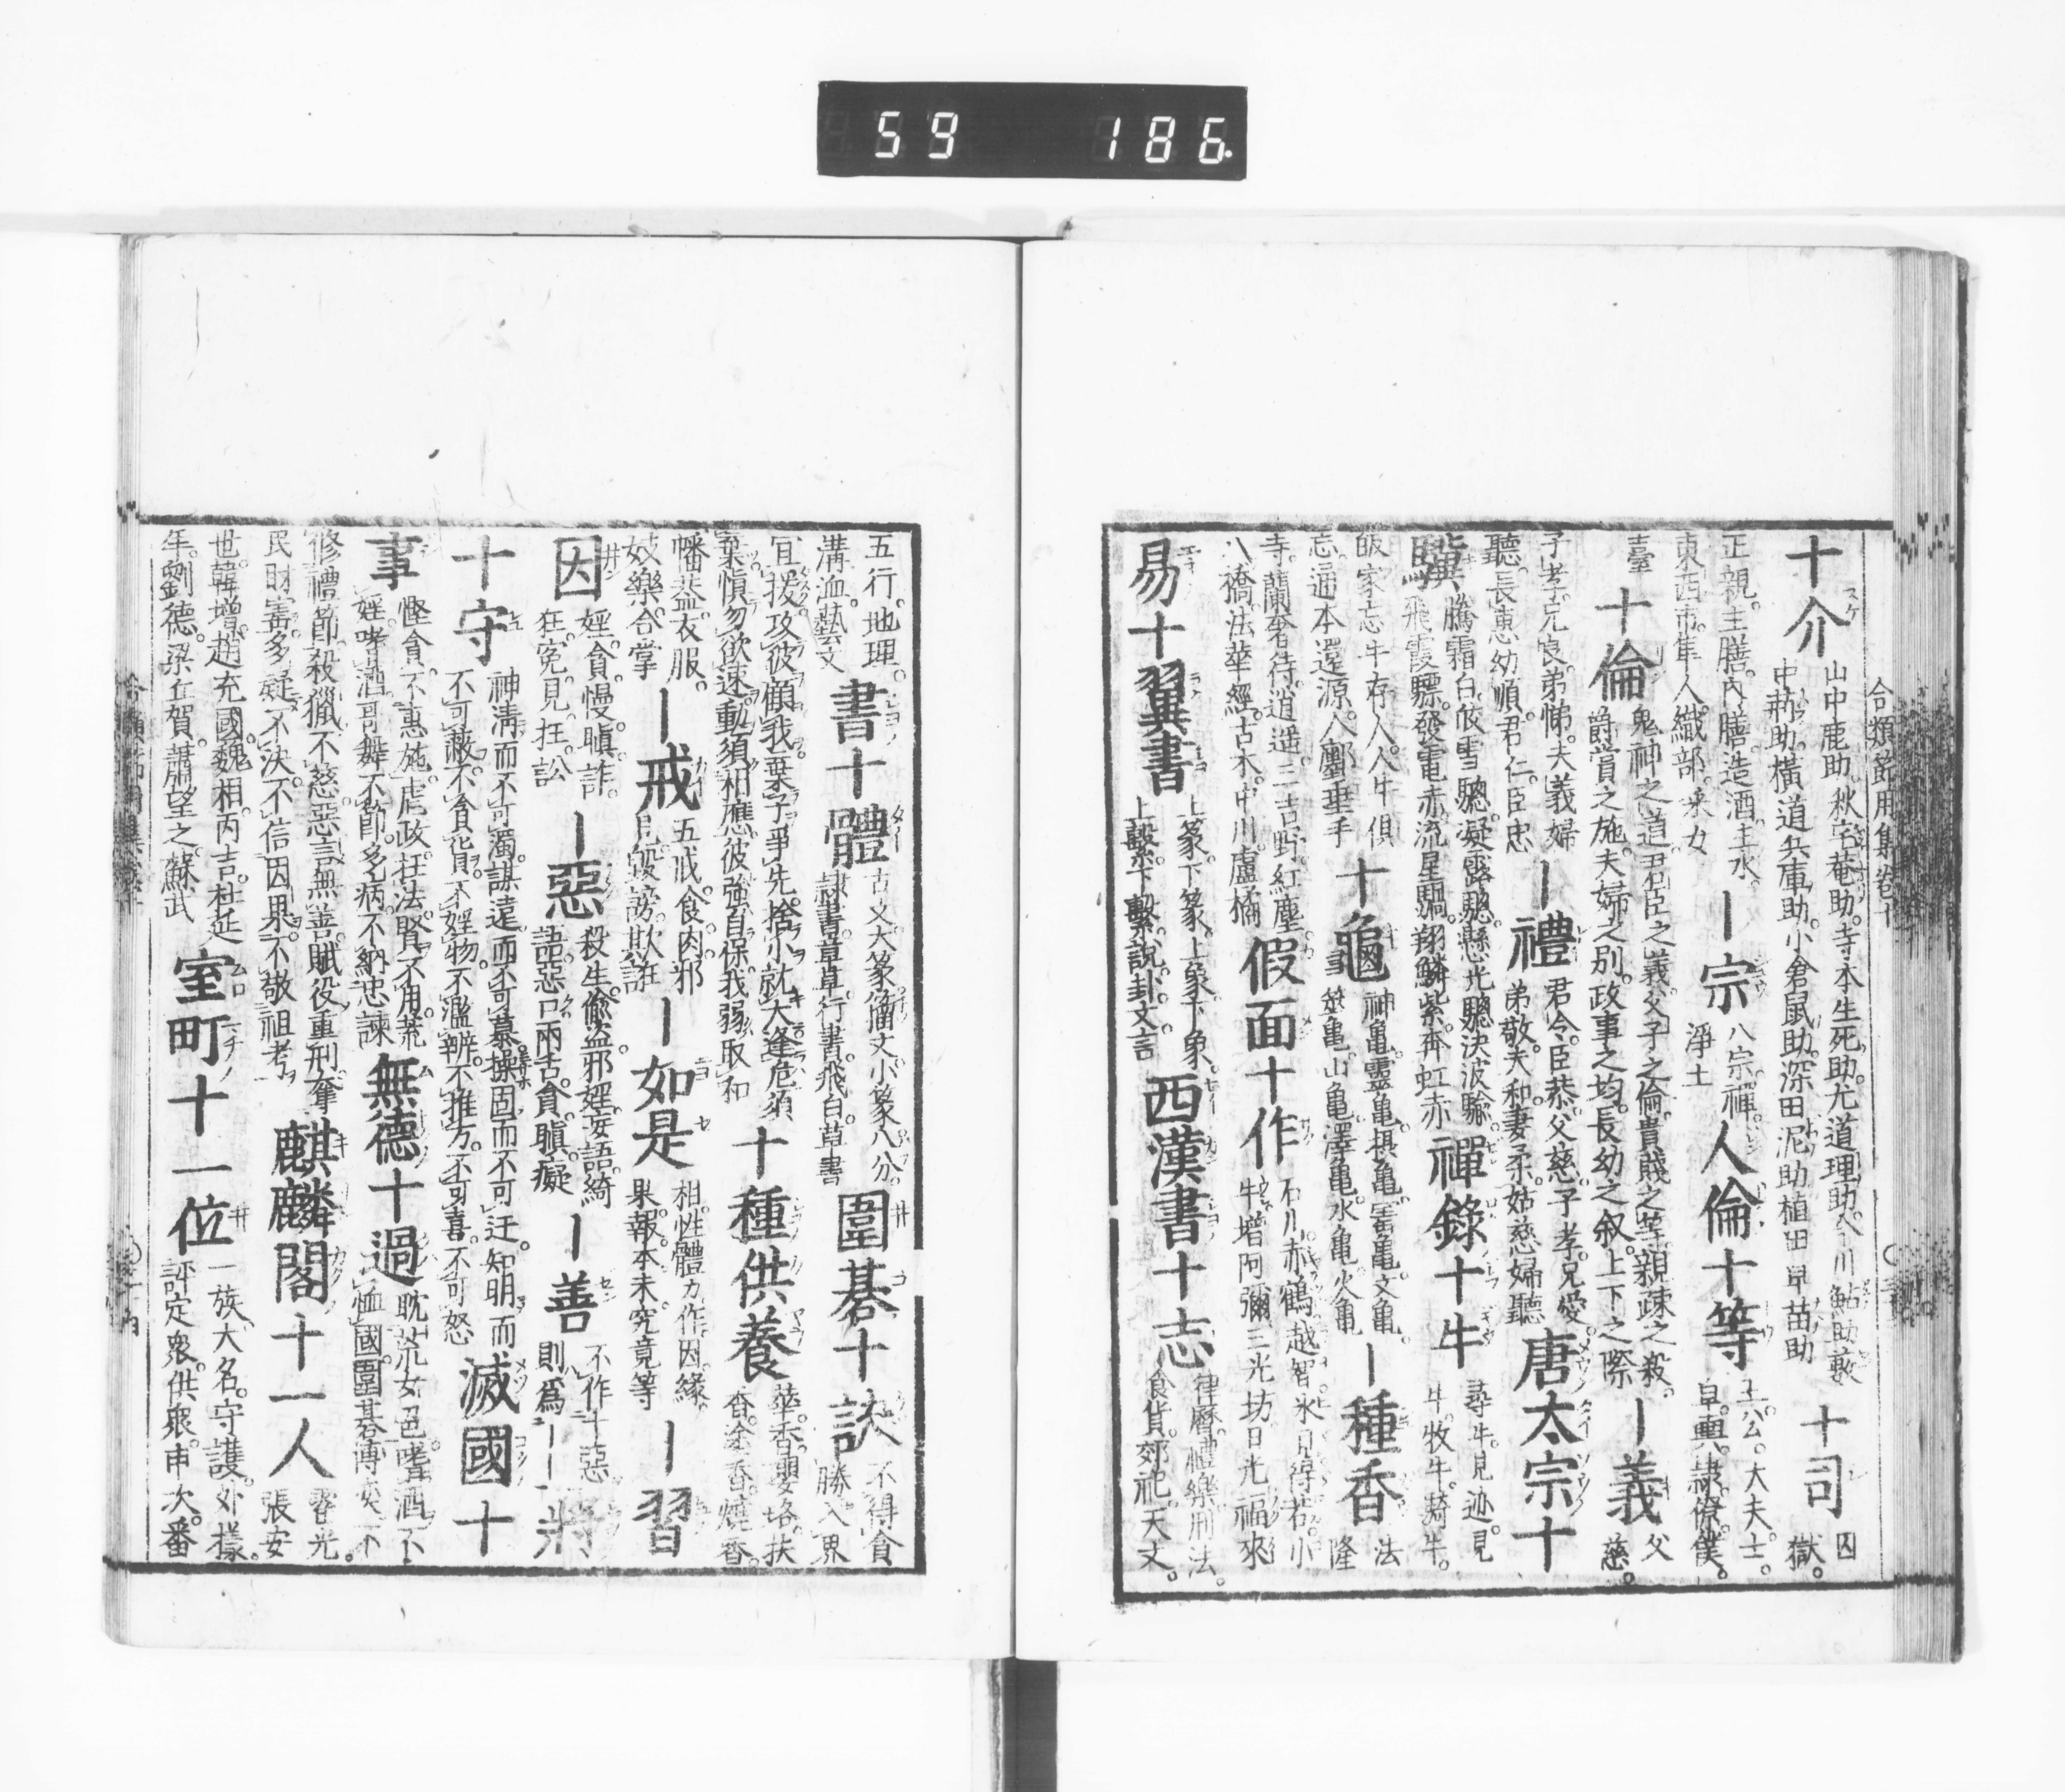 59 186
合類節用集卷十
十介 山中鹿助。秋宅菴助。寺本生死助。尤道理助。今川鮎助。藪
中荊助。橫道兵庫助。小倉鼠助。深田泥助。植田早苗助 十司 囚獄。
正親。主膳。內膳。造酒。主水。
東西市。隼人。織部。采女 ―宗 八宗。禪。淨土 人倫十等 王。公。大夫。士。
皁。輿。隸。僚。僕。
臺 十倫 鬼神之道。君臣之義。父子之倫。貴賤之等。親疎之殺。
爵賞之施。夫婦之別。政事之均。長幼之叙。上下之際 ―義 父慈。
子孝。兄良。弟悌。夫義婦
聽。長惠。幼順。君仁。臣忠 ―禮 君令。臣恭。父慈。子孝。兄愛。
弟敬。夫和。妻柔。姑慈。婦聽 唐太宗十
驥 騰霜白。皎雪驄。凝露驄。懸光驄。決波騟。
飛霞驃。發電赤。流星騧。翔鱗紫。奔虹赤 禪錄十牛 尋牛。見迹。見
牛。牧牛。騎牛。
皈家。忘牛存人。人牛俱
忘。還本還源。入鄽垂手 十龜 神龜。靈龜。攝龜。寶龜。文龜。
筮龜。山龜。澤龜。水龜。火龜 ―種香 法隆
寺。蘭奢待。逍遥。三吉野。紅塵。
八橋。法華經。古木。中川。盧橘 假面十作 石川。赤鶴。越智。氷見。得若。小
牛。增阿彌。三光坊。日光。福來
易十翼書 上彖。下彖。上象。下象。
上繫。下繫。說卦。文言 西漢書十志 律曆。禮樂。刑法。
食貨。郊祀。天文。
五行。地理。
溝洫。藝文 書十體 古文。大篆。籀文。小篆。八分。
隷書。章草。行書。飛白。草書 圍碁十訣 不得貪勝。入界
宜 。攻彼顧我。棄子爭先。捨小就大。逢危須
棄。愼勿欲速。動須相應。彼強自保。我弱取和 十種供養 華。香。瓔珞。抹
香。塗香。燒香。
幡蓋。衣服。
妓樂。合掌 ―戒 五戒。食肉。邪
見。毀謗。欺誑 ―如是 相。性。體。力。作。因。緣。
果。報。本末究竟等 ―習
因 婬。貪。慢。瞋。詐。
狂。寃。見。枉。訟 ―惡 殺生。偷盜。邪婬。妄語。綺
語。惡口。兩舌。貪。瞋。癡 ―善 不作十惡
則爲―― ―將
十守 神淸而不可濁。謀遠而不可慕。操固而不可迂。知明而
不可蔽。不貪貨。不婬物。不濫辨。不推方。不可喜。不可怒 滅國十
事 慳貪不惠施。虐政枉法。賢不用。荒
婬嗜酒。哥舞不節。多病。不納忠諫 無德十過 耽荒女色。嗜酒。不
恤國。圍碁博奕。不
修禮節。殺獵不慈。惡言無善。賦役重。刑奪
民財寳。多疑不決。不信因果。不敬祖考 麒麟閣十一人 霍光。
張安
世。韓增。趙充國。魏相。丙吉。杜延
年。劉德。梁丘賀。蕭望之。蘇武 室町十一位 一族大名。守護。外樣。
評定衆。供衆。申次。番